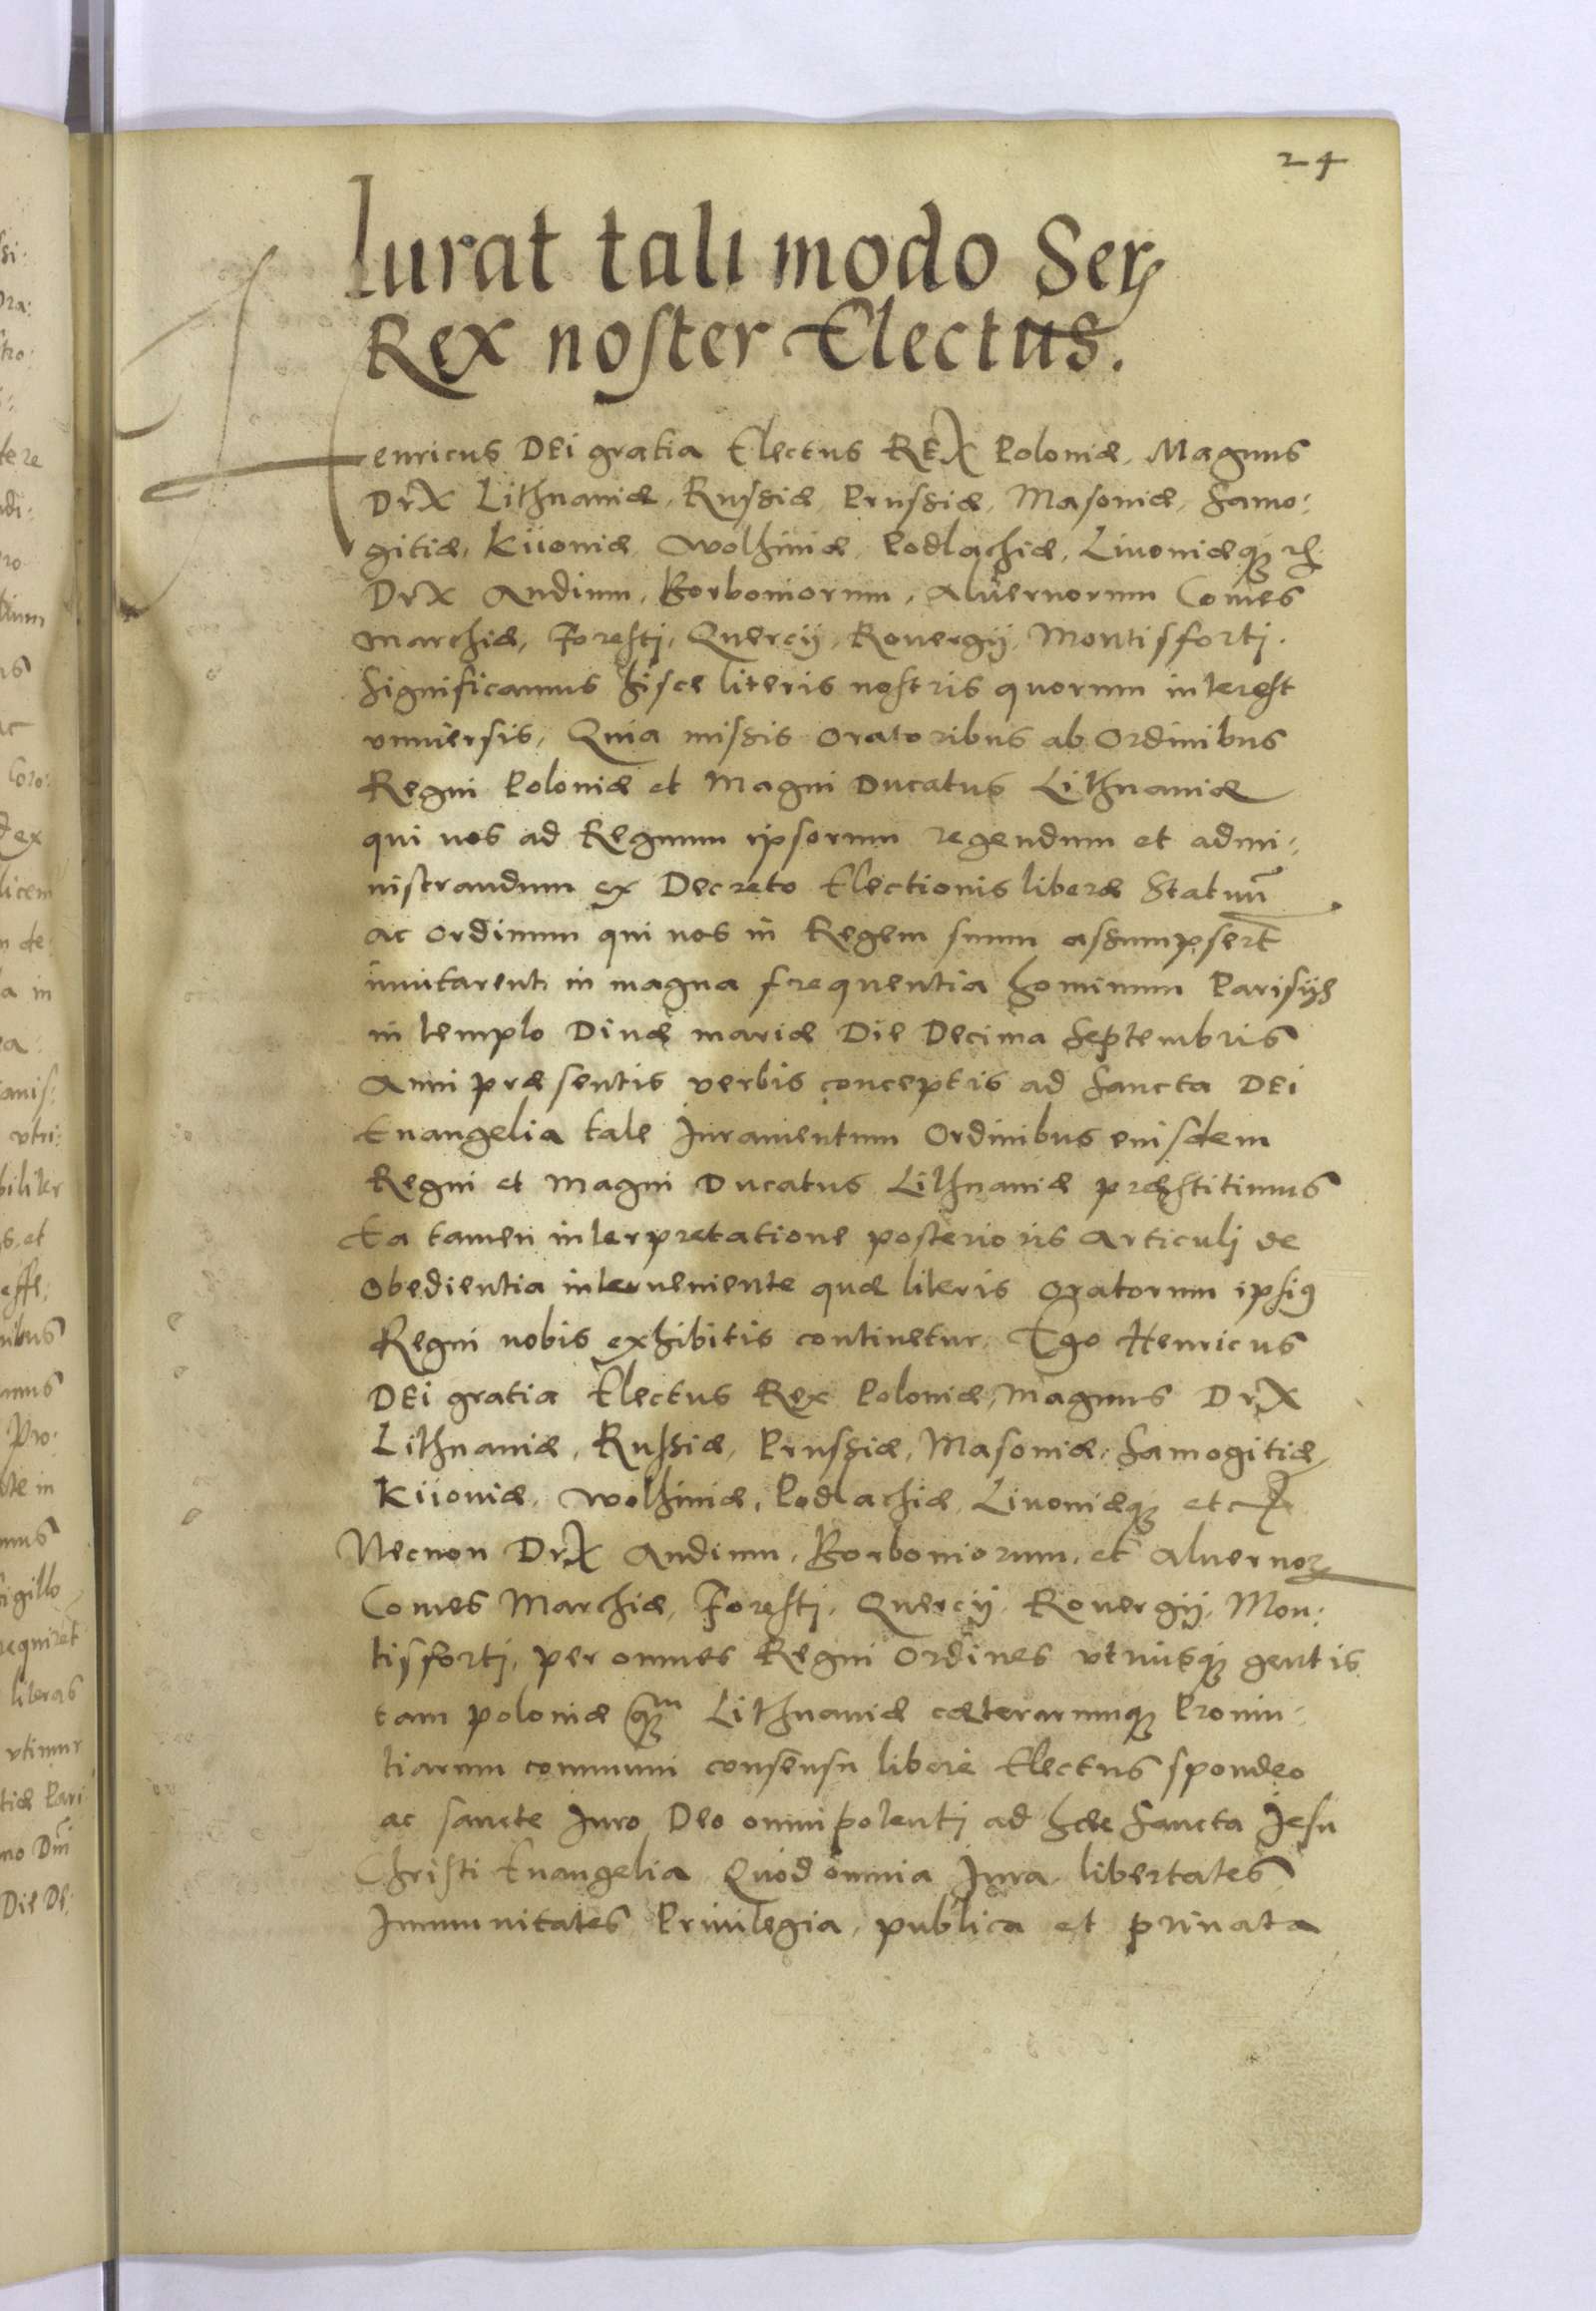 24
Iurat tali modo Ser
Rex noster Electus.
Henricus DEi gratia Electus REX Poloniæ, Magnus
DVX Lithuaniæ, Russiæ Prussiæ, Masoniæ, Samo:
gitiæ, Kiioniæ Wolhiniæ Podlachiæ, Liuoniæq3 rc.
DVX Andium, Borboniorum, Aluernorum Comes
Marchiæ, Foresti, Quercij, Rouergij, Montisforti.
Significamus hisce literis nostris quorum interest
vniuersis, Quia missis oratoribus ab Ordinibus
Regni Poloniæ et Magni Ducatus Lithuaniæ
qui nos ad Regnum ipsorum regendum et admi:
nistrandum ex Decreto Electionis liberæ Statuū
ac ordinum qui nos in Regem suum assumpsert̄
inuitarent, in magna frequentia hominum Parisijs
in templo Diuæ mariæ Die Decima Septembris
Anni præsentis verbis conceptis ad Sancta DEi
Euangelia tale Iuramentum Ordinibus eiusdem
Regni et Magni Ducatus Lithuaniæ præstitimus
Ea tamen interpretatione posterioris Articuli de
Obedientia interueniente quæ literis Oratorum ipsiꝰ
Regni nobis exhibitis continetur. Ego Henricus
DEi gratia Electus Rex Poloniæ, Magnus DVX
Lithuaniæ, Russiæ, Prussiæ, Masoniæ, Samogitiæ,
Kiioniæ, Wolhiniæ, Podlachiæ, Liuoniæq3 etc
Necnon DVX Andium, Borboniorum, et Aluernoꝝ
Comes Marchiæ, Foresti, Quercij, Rouergij, Mon:
tisforti, per omnes Regni Ordines vtriusq3 gentis
tam poloniæ qm Lithuaniæ cæterarumq3 Prouin:
tiarum communi consensu libere Electus spondeo
ac sancte Iuro Deo omnipotenti ad hæc Sancta Jesu
Christi Euangelia Quod omnia Iura, libertates,
Immunitates Priuilegia, publica et priuata